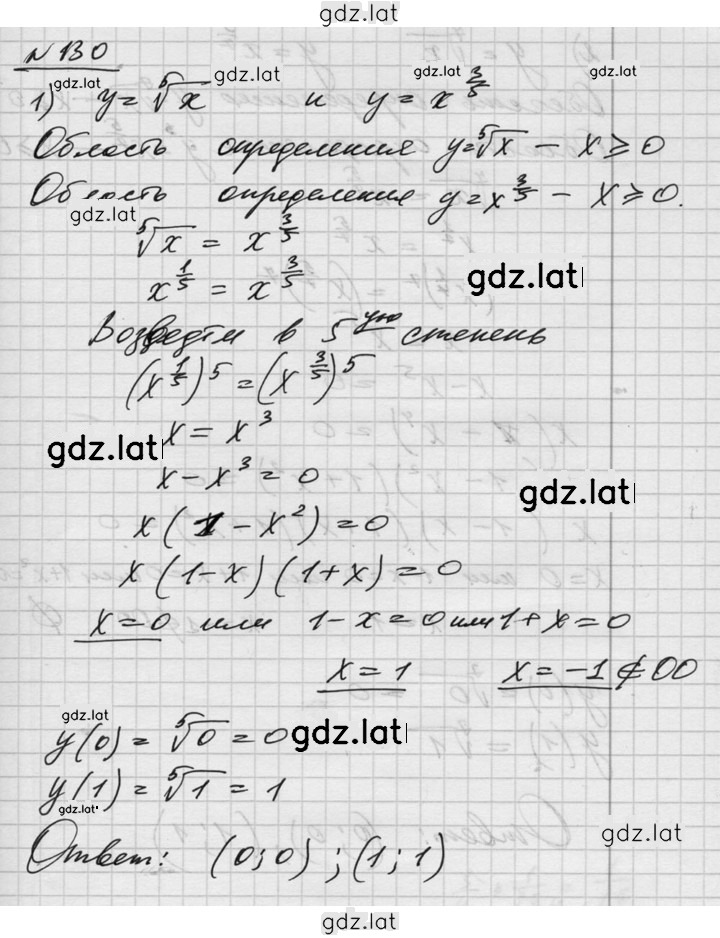 gdz.lat
№ 130
gdz.lat gdz.lat gdz.lat gdz.lat
1) y = ⁵√x и y = x^(3/5)
Область определения y = ⁵√x – x ≥ 0
Область определения y = x^(3/5) – x ≥ 0.
gdz.lat
⁵√x = x^(3/5)
x^(1/5) = x^(3/5)
gdz.lat
Возведём в 5ую степень
(x^(1/5))^5 = (x^(3/5))^5
x = x³
gdz.lat
x – x³ = 0
gdz.lat
x(1 – x²) = 0
x(1 – x)(1 + x) = 0
x = 0 или 1 – x = 0 или 1 + x = 0
x = 1 x = –1 ∉ ОО
gdz.lat
y(0) = ⁵√0 = 0
gdz.lat
y(1) = ⁵√1 = 1
gdz.lat
Ответ: (0; 0) ; (1; 1)
gdz.lat
gdz.lat